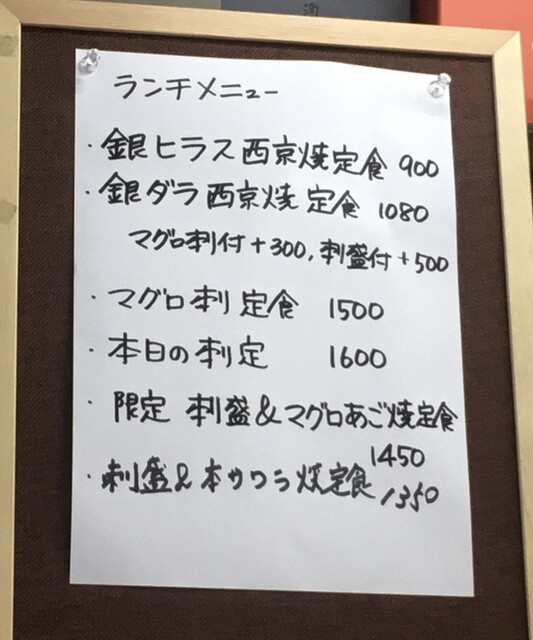 ランチメニュー
・銀ヒラス西京焼定食 900
・銀ダラ西京焼定食 1080
マグロ刺付+300, 刺盛付+500
・マグロ刺定食 1500
・本日の刺定 1600
・限定 刺盛&マグロあご焼定食
1450
・刺盛&本サワラ焼定食 1350